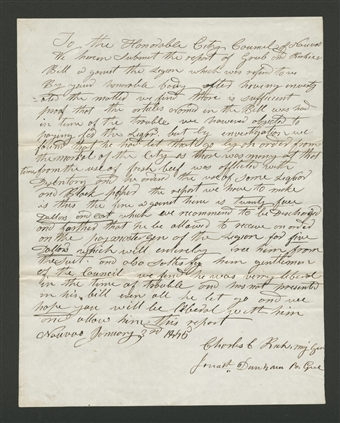 To the Honorable City Council of Nauvoo
We hav submit the report of Gaub on
Bill against the Legion which was refered to us
By your honorable body after having investi
ated the matter we find there is sufficent
proof that the article stoned in the Bill was had
in time of the trouble we however objected to
paying for the Liqor but by investigation we
found that he had let that go by an order from
the marshal of the City as there was many of that
time from the use of fresh beef was aflicted with
Dysentery and he ordered the use of some Liquor
and Black pepper the report we have to make
is this the fine against him is twenty five
Dollars and cost which we recommend to be Discharged
and farther that he be allowed to receive an order
on the paymaster gen of the Legion for five
Dollars which will entirely free him from
the suit and also satisfy him gentlemen
of the Council we find he was very liberal
in the time of trouble and has not presented
in his bill even all he let go and we
hope you will be liberal with him
and allow him this report
Nauvoo January 3rd 1846
Charles C Rich, Mj Gen
Jonath Dunham Br Genl